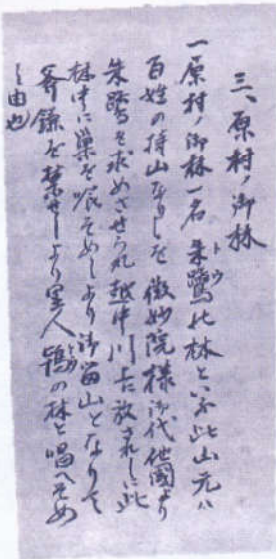 三、原村ノ御林
一原村ノ御林一名朱鷺の林といふ此山元ハ
トウ
百姓の持山なりしを微妙院様御代他國より
朱鷺を求めさせられ越中川上に放されしに此
林中に巣を喰そめしより御留山となりて
斧鎌を禁せしより里人鴇の林と唱へそめ
し由也